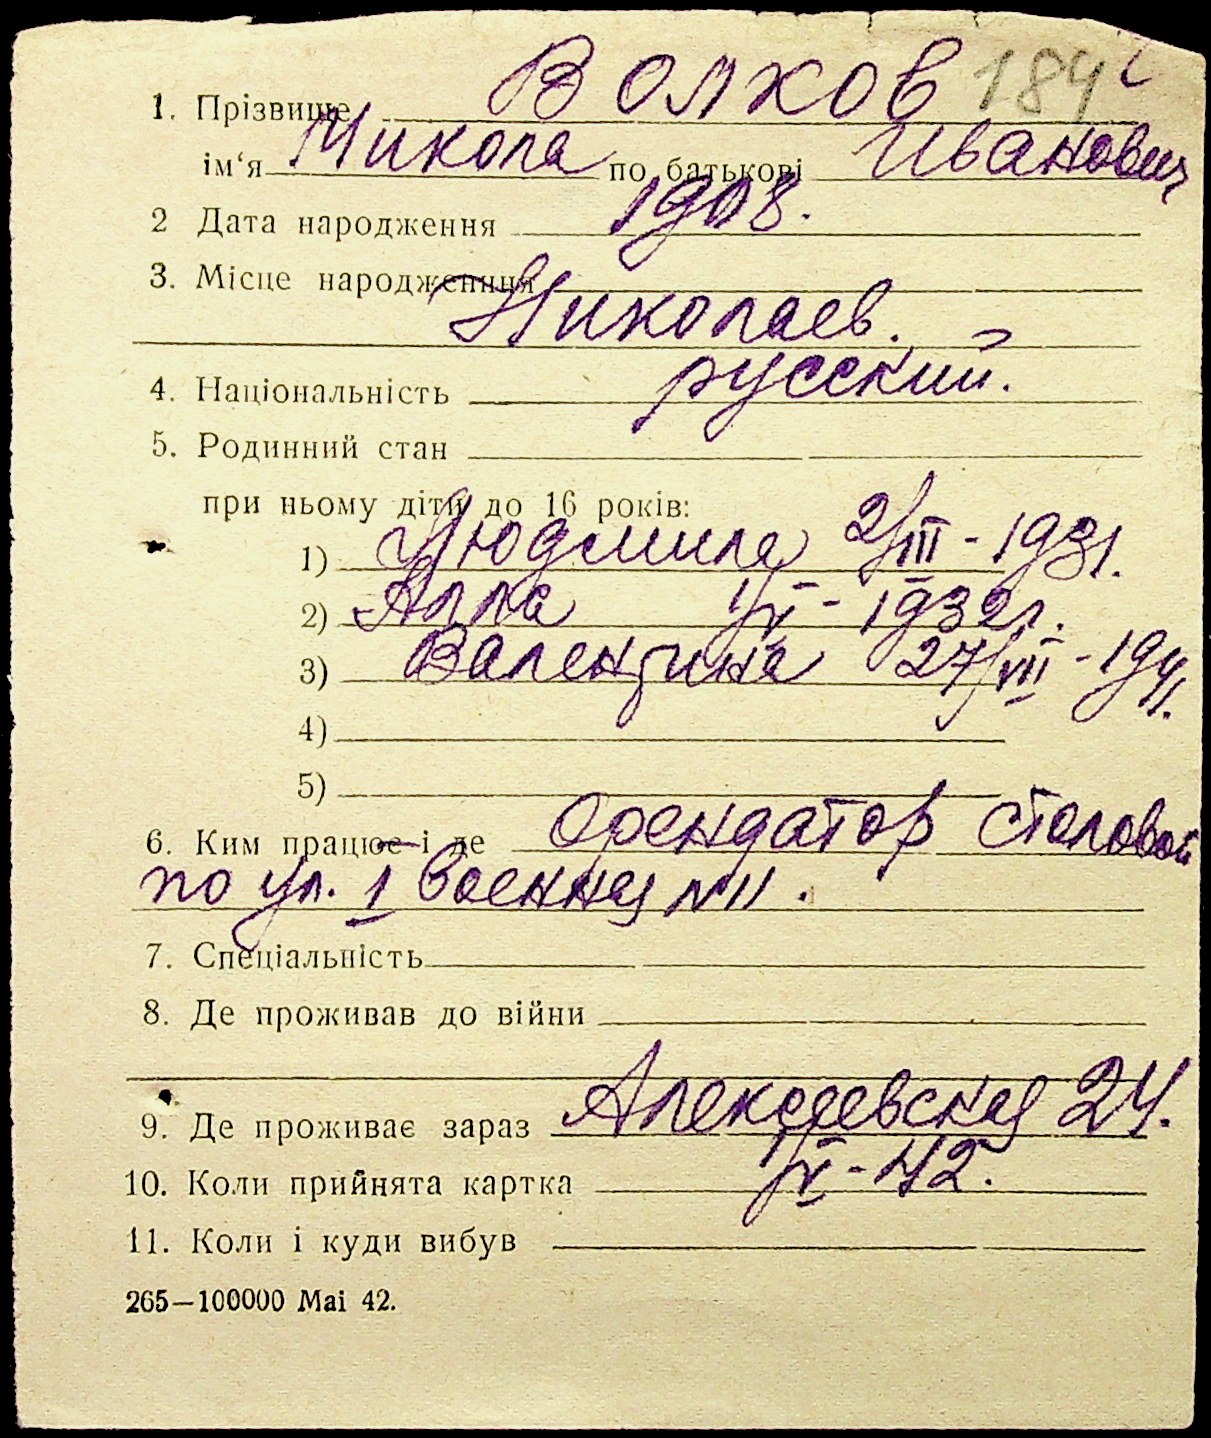 1. Прізвище Волков 184
ім‘я Микола по батькові Иванович
2 Дата народження 1908.
3. Місце народженння
Николаев.
4. Національність русский.
5. Родинний стан
при ньому діти до 16 років:
1) Людмила 2/III - 1931.
2) Алла 1/V - 1932г.
3) Валентина 27/VIII - 1941.
4)
5)
6. Ким працює і де Орендатор столовой
по ул. 1 Военная №11.
7. Спеціальність
8. Де проживав до війни
9. Де проживає зараз Алексеевская 24.
10. Коли прийнята картка 1/V - 42.
11. Коли і куди вибув
265—100000 Mai 42.